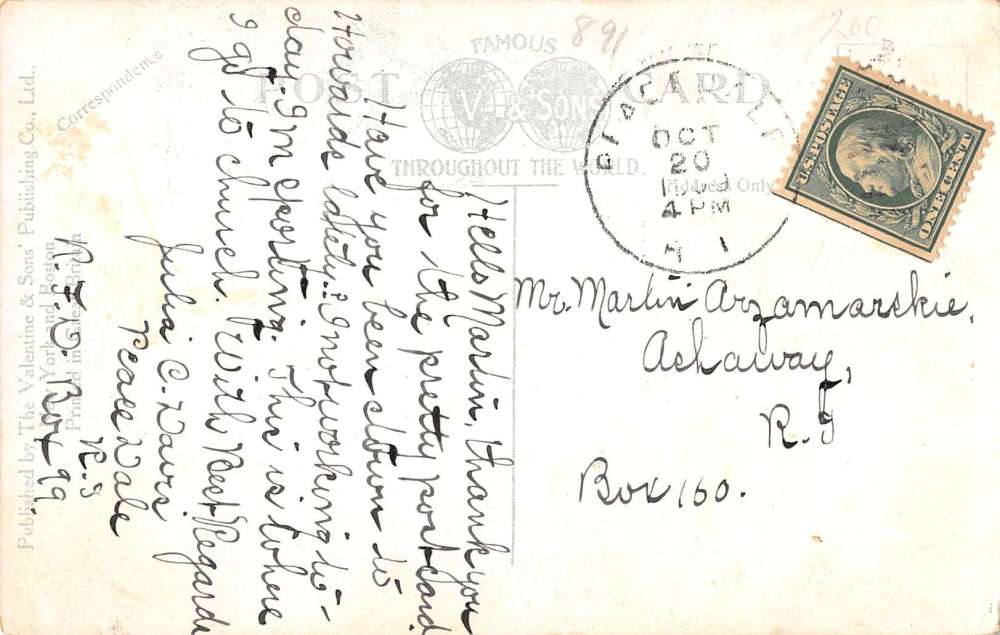 891
200
FAMOUS
POST CARD
V. & SONS
THROUGHOUT THE WORLD.
Correspondence
Address Only
Published by The Valentine & Sons' Publishing Co., Ltd.,
New York and Boston
Printed in Great Britain
OCT
20
4 PM
R I
U.S. POSTAGE
ONE CENT
Hello Martin, thank you
for the pretty post card.
Have you been down to
Howards lately? I'm not working to-
day. I'm sporting. This is where
I go to church. With Best Regards
Julia C. Davis
Peace Dale
R. I
R.F.D. Box 99
Mr. Martin Arzamarskie,
Ashaway,
R. I
Box 160.